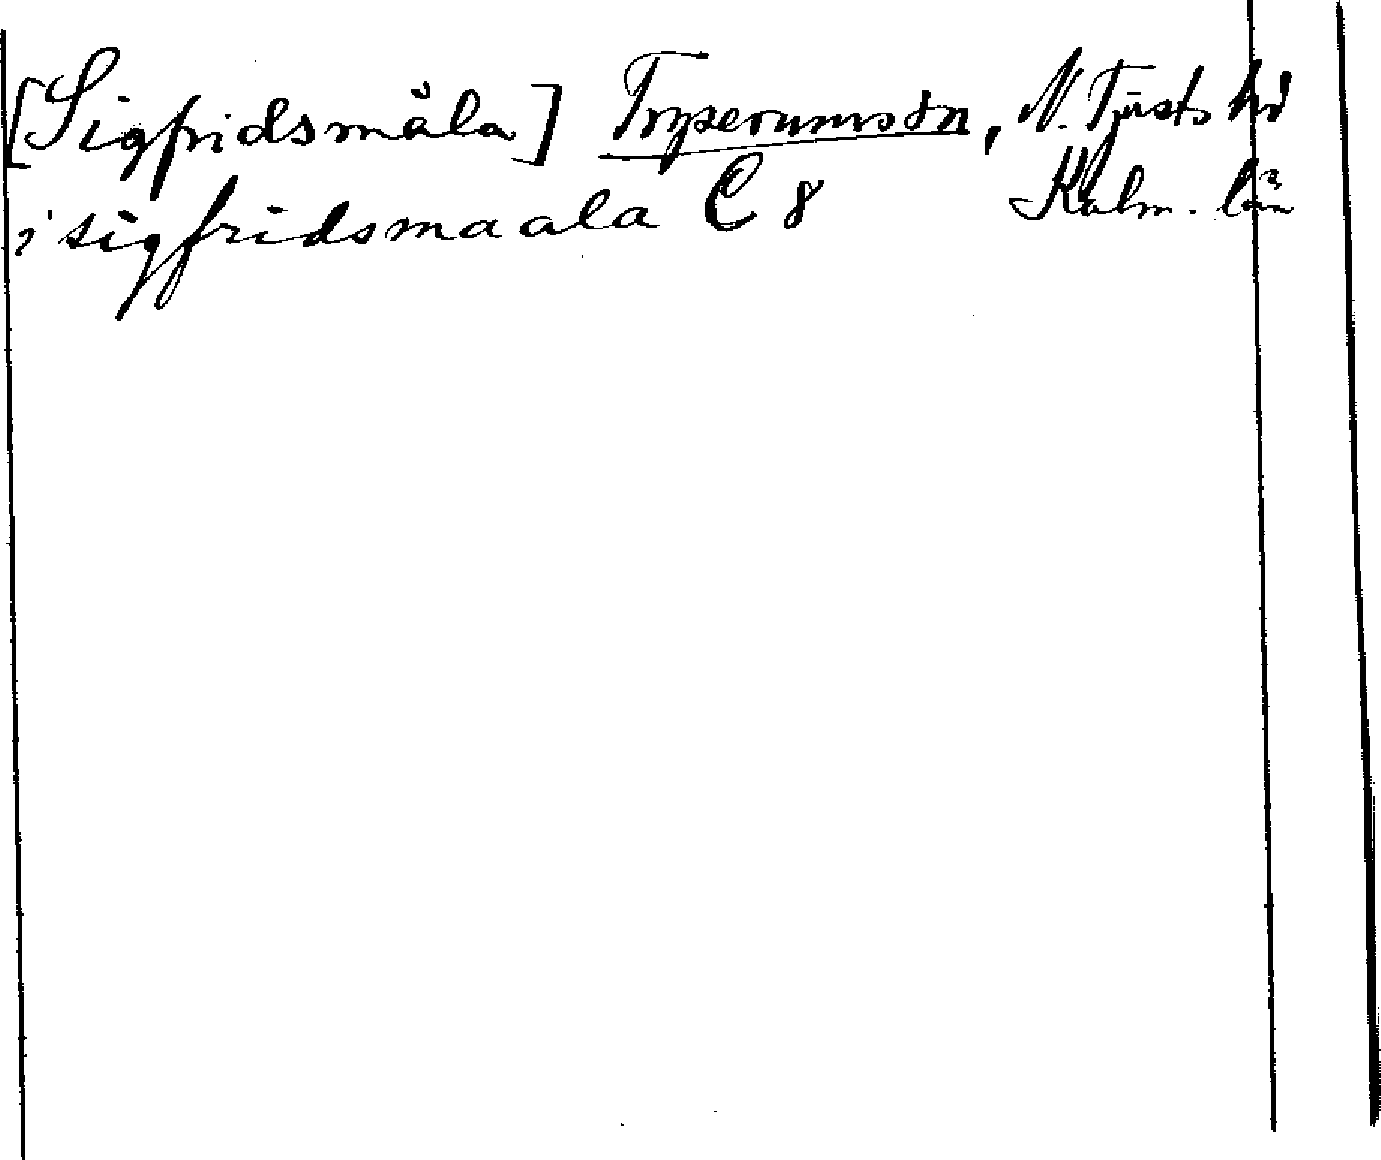 [Sigfridsmåla] Tryserums sn, N. Tjusts hd
i sigfridsmaala C 8 Kalm. län